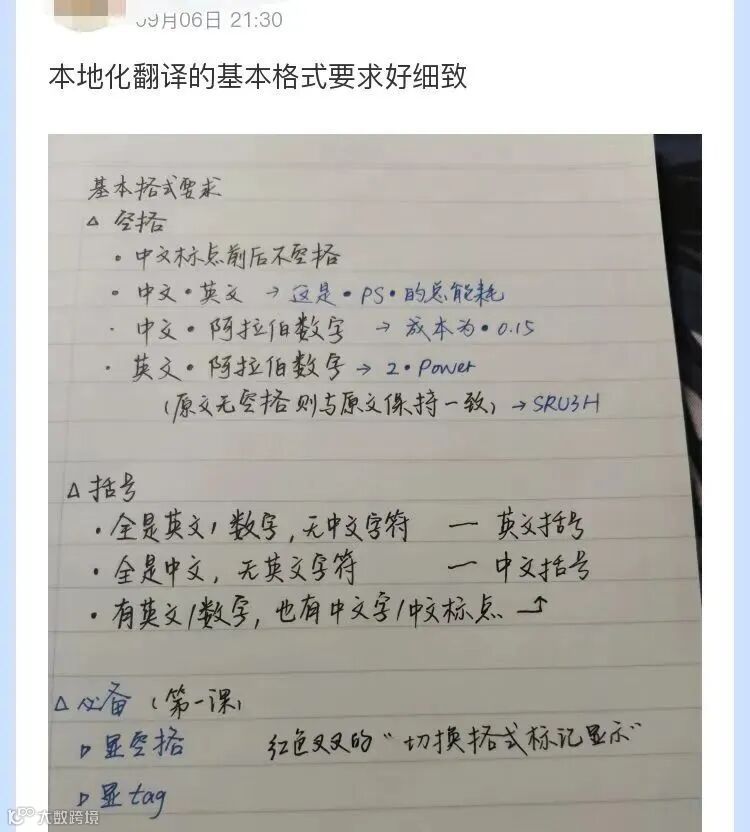 09月06日 21:30
本地化翻译的基本格式要求好细致
基本格式要求
△ 空格
· 中文标点前后不空格
· 中文·英文 → 这是·PS·的总能耗
· 中文·阿拉伯数字 → 成本为·0.15
· 英文·阿拉伯数字 → 2·Power
(原文无空格则与原文保持一致) → SRU3H
△ 括号
· 全是英文/数字,无中文字符 — 英文括号
· 全是中文,无英文字符 — 中文括号
· 有英文/数字,也有中文字/中文标点 ⤴
△ 必备 (第一课)
▷ 显空格 红色叉叉的“切换格式标记显示”
▷ 显tag
大数跨境